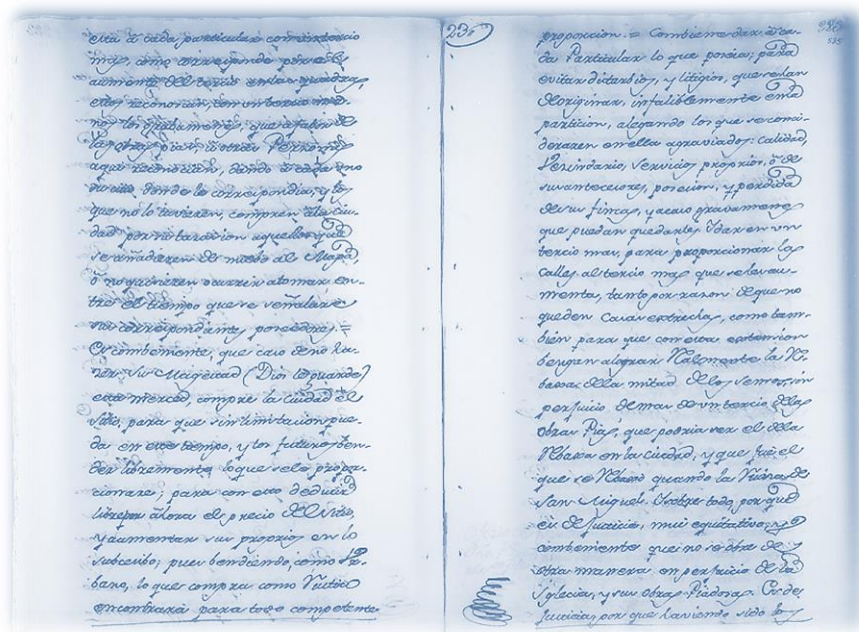 esta à cada particular con un tercio
mas, como corresponde por el
aumento del tercio en las quadras,
ellos reconocian, con un tercio me-
nos los grabamenes, que à falta de
las obras pias, ù otras Personas
aqui reconocian, dando à cada uno
su sitio, donde le correspondia, y los
que no lo tuvieren, compren à la Ciu-
dad por su tasacion aquellos que
se añadieren de nuebo al Mapa,
ò no quisieren ocurrir a tomar en-
tre el tiempo que se señalare
sus correspondientes poseedores =
Es combeniente, que caso de no ha-
cer Su Magestad (Dios le guarde)
esta merced, compre la Ciudad el
Sitio, para que sin limitacion pue-
da en este tiempo, y los futuros ben-
der libremente lo que se le propor-
cionare; para con esto deducir
el precio del Sitio,
y aumentar sus proprios en lo
subcesibo; pues bendiendo, como Ur-
bano, lo que compra como Rustico
encontrarà para todo competente
235
proporcion. = Combiene dar à ca-
da Particular lo que poseia; para
evitar disturbios, y litigios, que se han
de originar, infaliblemente en la
particion, alegando los que se consi-
deraren en ella agraviados: Calidad,
Vecindario, Servicios proprios, ò de
sus antecesores, posesion, y perdida
de sus fincas, y acaso gravamenes
que puedan quedarles. Y dar en un
tercio mas, para proporcionar las
Calles al tercio mas que se les au-
menta, tanto por razon de que no
queden Casas estrechas, como tam-
bien para que con esta extension
bengan a lograr Realmente la Re-
baxa de la mitad de los Censos, sin
perjuicio de mas de un tercio de las
Obras Pias, que podria ser el de la
Rebaxa en la Ciudad, y que fue el
que se Rebaxò quando la Ruina de
San Miguel. Y sobre todo, por que
es de justicia, mui equitativo, y
combeniente que no se obre de
otra manera en perjuicio de la
Iglesia, y sus Obras Piadosas. Es de
Justicia, por que haviendo sido los